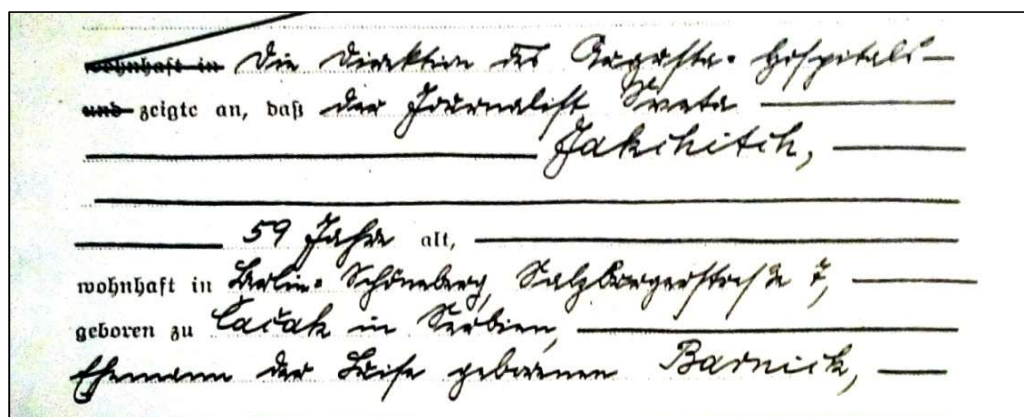 wohnhaft in die Direktion des Augusta-Hospitals
und zeigte an, daß der Journalist Sveta
Jakchitch,
59 Jahre alt,
wohnhaft in Berlin-Schöneberg, Salzburgerstraße 7,
geboren zu Čačak in Serbien,
Ehemann der Luise geborenen Barnick,